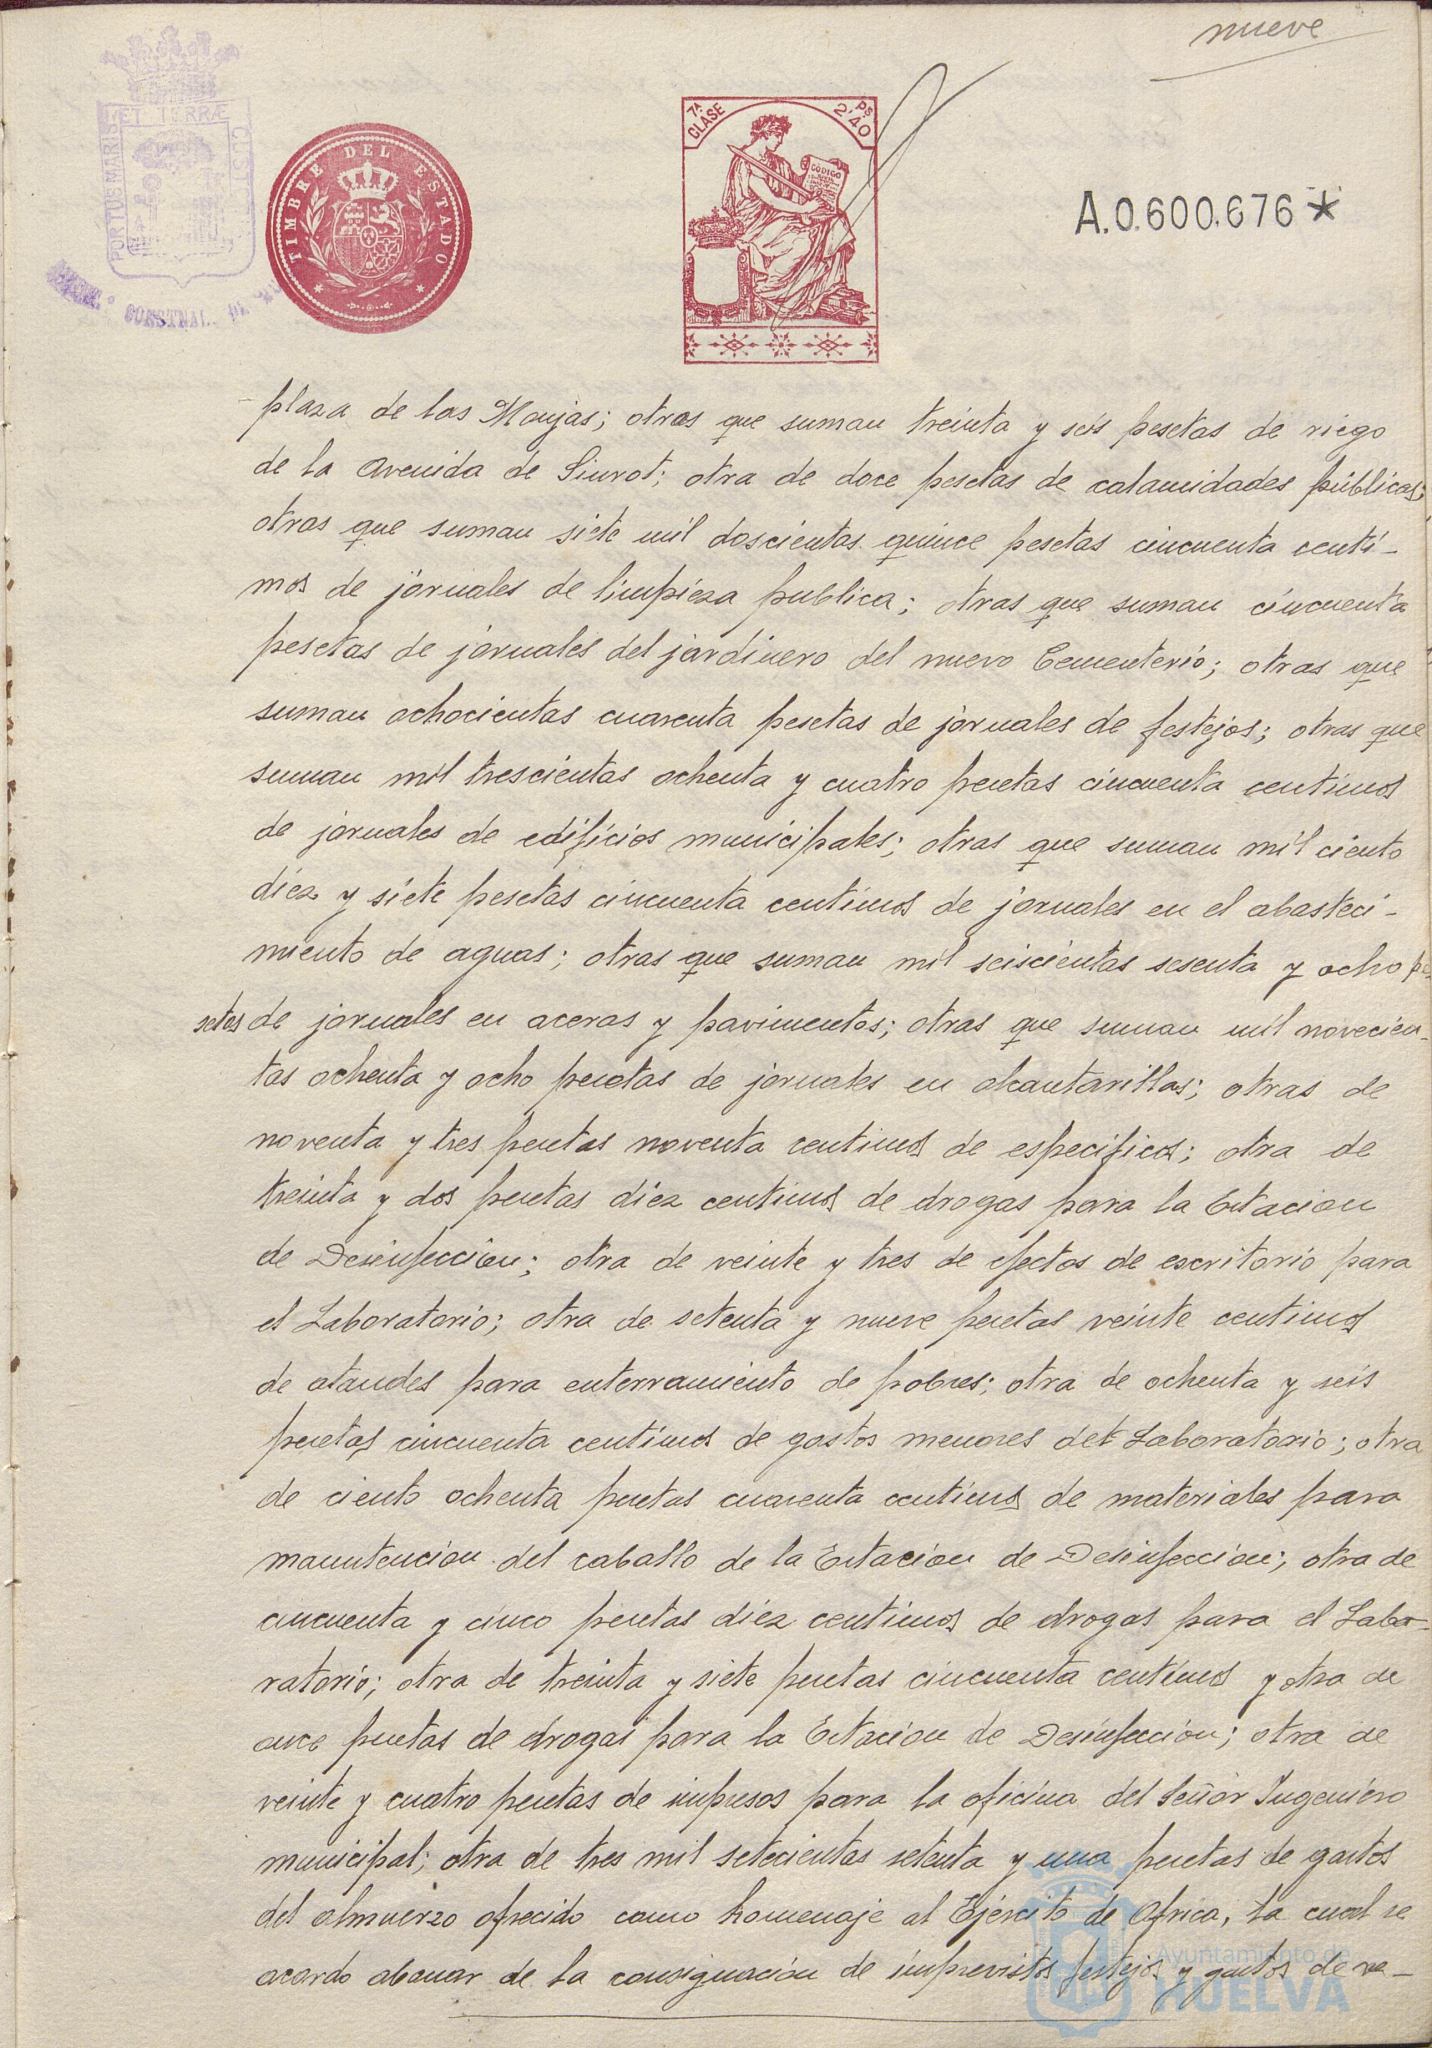 nueve
PORTUS MARIS ET TERRÆ CUSTODIA
CONSTNAL. DE
TIMBRE DEL ESTADO
7ª CLASE
PS 2'40
CODIGO
A.0.600.676*
plaza de las Monjas; otras que suman treinta y seis pesetas de riego
de la Avenida de Siurot; otra de doce pesetas de calamidades públicas;
otras que suman siete mil doscientas quince pesetas cincuenta centi-
mos de jornales de limpieza publica; otras que suman cincuenta
pesetas de jornales del jardinero del nuevo Cementerio; otras que
suman ochocientas cuarenta pesetas de jornales de festejos; otras que
suman mil trescientas ochenta y cuatro pesetas cincuenta centimos
de jornales de edificios municipales; otras que suman mil ciento
diez y siete pesetas cincuenta centimos de jornales en el abasteci-
miento de aguas; otras que suman mil seiscientas sesenta y ocho pe-
setas de jornales en aceras y pavimentos; otras que suman mil novecien-
tas ochenta y ocho pesetas de jornales en alcantarillas; otras de
noventa y tres pesetas noventa centimos de especificos; otra de
treinta y dos pesetas diez centimos de drogas para la Estacion
de Desinfeccion; otra de veinte y tres de efectos de escritorio para
el Laboratorio; otra de setenta y nueve pesetas veinte centimos
de ataudes para enterramiento de pobres; otra de ochenta y seis
pesetas cincuenta centimos de gastos menores del Laboratorio; otra
de ciento ochenta pesetas cuarenta centimos de materiales para
manutencion del caballo de la Estacion de Desinfeccion; otra de
cincuenta y cinco pesetas diez centimos de drogas para el Labo-
ratorio; otra de treinta y siete pesetas cincuenta centimos y otra de
once pesetas de drogas para la Estacion de Desinfeccion; otra de
veinte y cuatro pesetas de impresos para la oficina del Señor Ingeniero
municipal; otra de tres mil setecientas setenta y una pesetas de gastos
del almuerzo ofrecido como homenaje al Ejército de Africa, la cual se
acordo abonar de la consignación de imprevistos festejos y gastos de re-
Ayuntamiento de
HUELVA